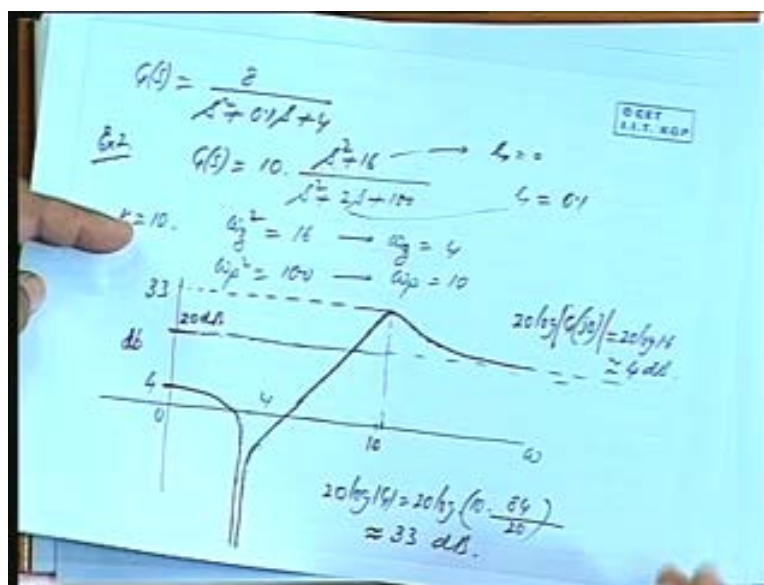 G(s) = 8 / s²+0.1s+4
D CET
I.I.T. KGP
Ex2 G(s) = 10. s²+16 / s²+2s+100 → ξ = 0
ξ = 0.1
K=10. ωz² = 16 → ωz = 4
ωp² = 100 → ωp = 10
33
20dB
20log|G(j0)| = 20log1.6
≈ 4 dB.
db
4
0
4
10
ω
20log|G| = 20log(10. 84/20)
≈ 33 dB.